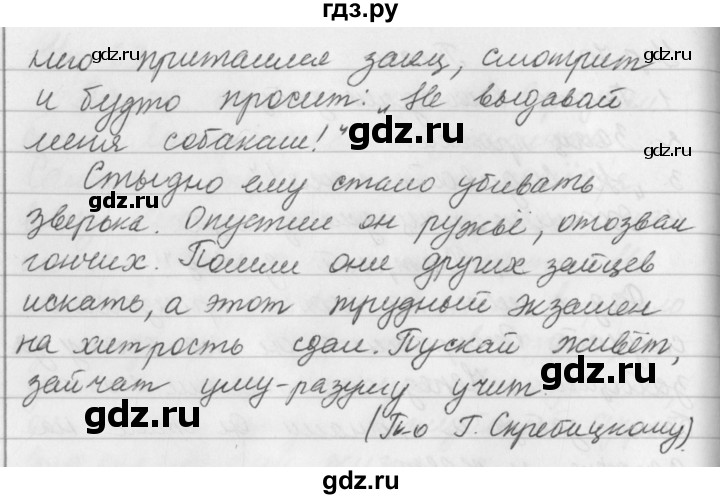 гдз.ру
него притаился заяц, смотрит
и будто просит: „Не выдавай
меня собакам!“
Стыдно ему стало убивать
зверька. Опустил он ружьё, отозвал
гончих. Пошли они других зайцев
искать, а этот трудный экзамен
на хитрость сдал. Пускай живёт,
зайчат уму-разуму учит.
(По Г. Скребицкому).
gdz.ru
gdz.ru
gdz.ru
gdz.ru
gdz.ru
gdz.ru
gdz.ru
gdz.ru
gdz.ru
gdz.ru